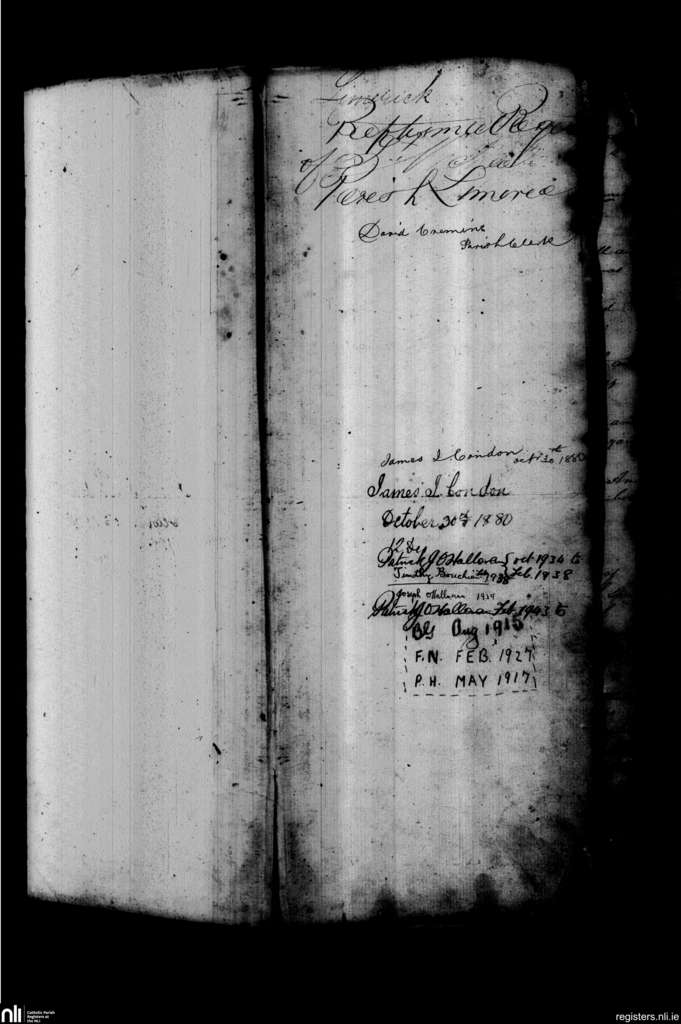 Limerick
Baptismal Reg
of
Parish Limeric
David Cremins
Parish Clerk
James I Condon Oct 30th 1880
James I. Condon
October 30th 1880
Patrick J O'Halloran Oct 1934 to
Timothy 1938 Feb 1938
Joseph O'Halloran 1939
Patrick J O'Halloran Feb 1943 to
Aug 1915
F.N. FEB. 1927
P.H. MAY 1917
nli
Catholic Parish
Registers at
the NLI
registers.nli.ie